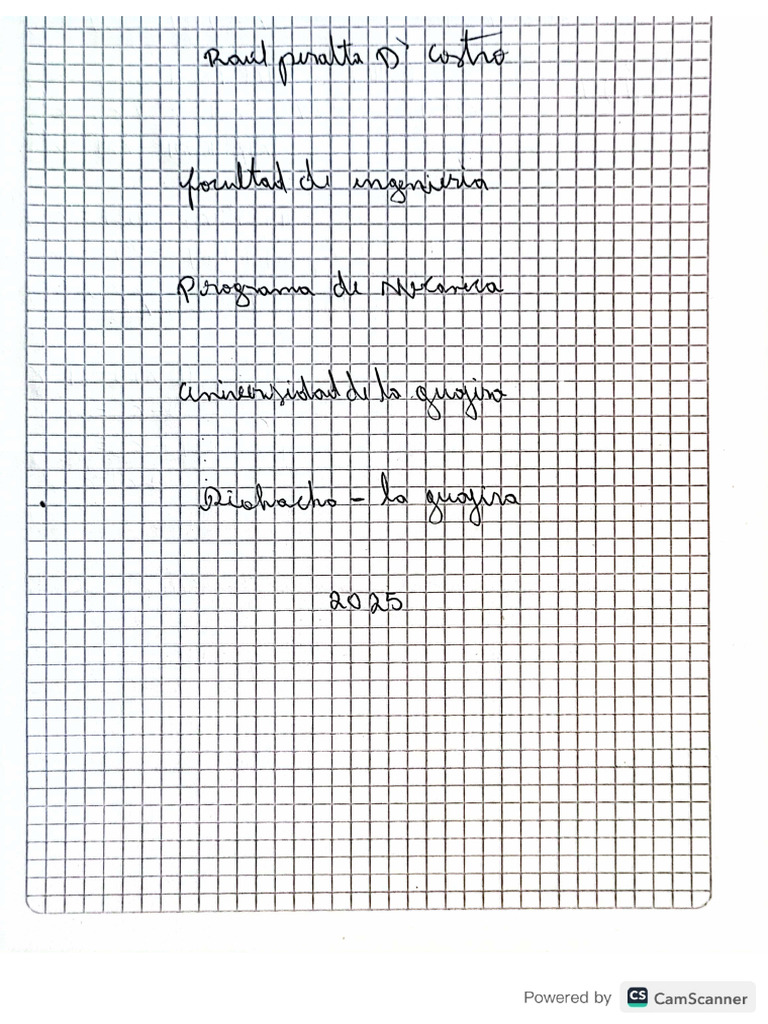 Raúl peralta D' Castro
facultad de ingenieria
Programa de Mecanica
universidad de la guajira
Riohacha - la guajira
2025
Powered by CS CamScanner